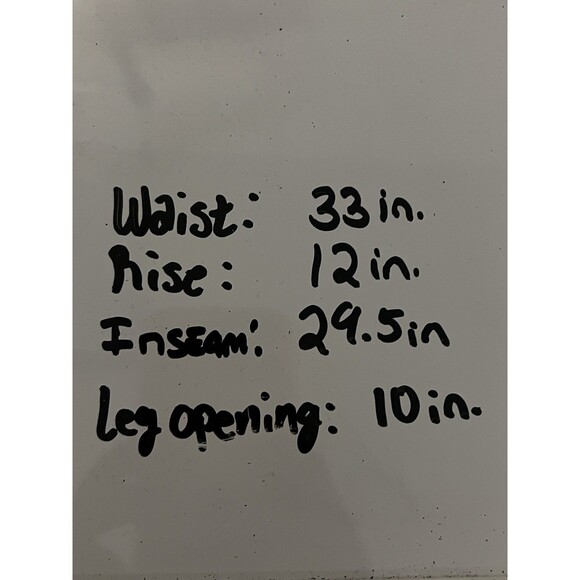 Waist: 33 in.
Rise: 12 in.
Inseam: 29.5 in
Leg opening: 10 in.